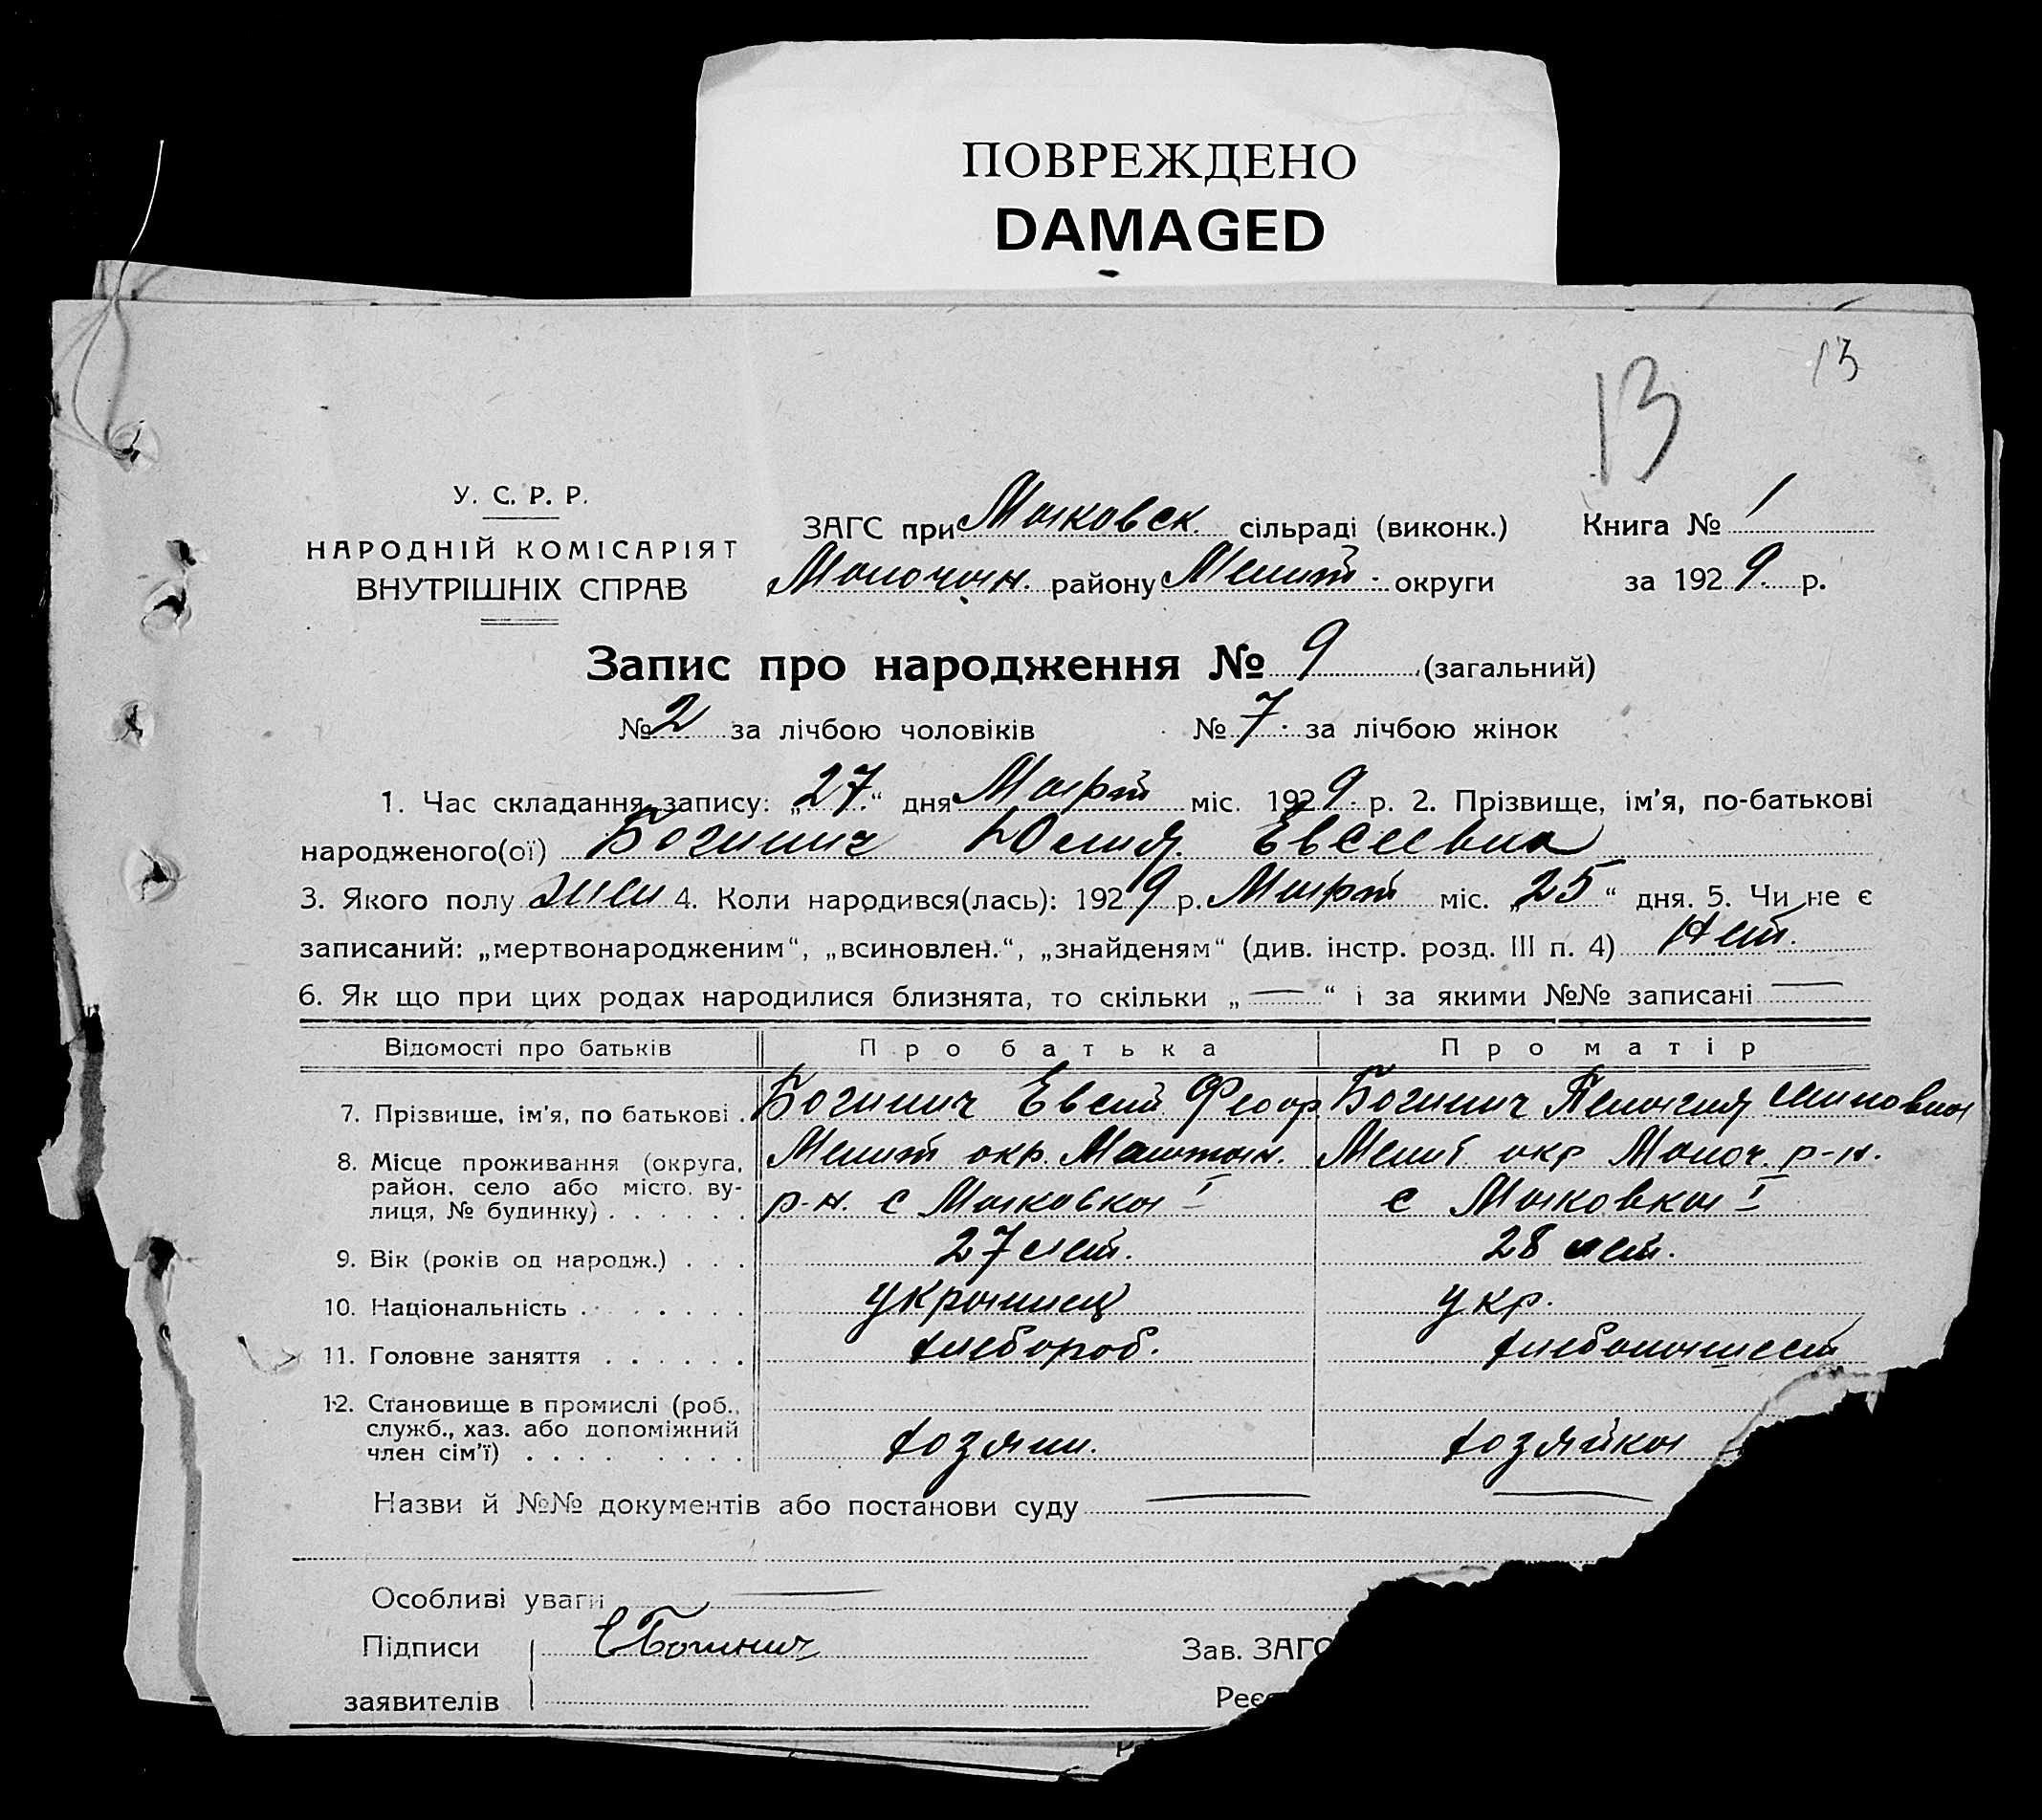 ПОВРЕЖДЕНО
DAMAGED
13
13
У. С. Р. Р.
НАРОДНІЙ КОМІСАРІЯТ
ВНУТРІШНІХ СПРАВ
ЗАГС при Маковск. сільраді (виконк.)
Молочан. району Мелит. округи
Книга № 1
за 1929. р.
Запис про народження № 9 (загальний)
№ 2 за лічбою чоловіків № 7. за лічбою жінок
1. Час складання запису: „27“ дня Март міс. 1929. р. 2. Прізвище, ім'я, по-батькові
народженого(ої) Богинич Юлия Евсеевна
3. Якого полу жен 4. Коли народився(лась): 1929 р. Март міс. „25“ дня. 5. Чи не є
записаний: „мертвонародженим“, „всиновлен.“, „знайденям“ (див. інстр. розд. III п. 4) Нет.
6. Як що при цих родах народилися близнята, то скільки „—“ і за якими №№ записані —
Відомості про батьків Про батька Про матір
7. Прізвище, ім'я, по батькові . Богинич Евсий Феор Богинич Пелагия
8. Місце проживання (округа, район, село або місто, ву- лиця, № будинку) . . . . . .
Мелит окр. р-н. с Маковка I
Мелит. окр Молоч. р-н. с Маковка I
9. Вік (років од народж.) . . . 27 лет. 28 лет.
10. Національність . . . . . . украинец укр.
11. Головне заняття . . . . . . хлебороб. хлебопашест
12. Становище в промислі (роб., служб., хаз. або допоміжний член сім'ї) . . . . . . . .
хозяин. хозяйка
Назви й №№ документів або постанови суду — —
Особливі уваги —
Підписи Е Богинич Зав. ЗАГС
заявителів Реєс